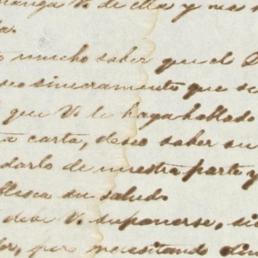 tenga V. de ella y me s
da.
o mucho saber que el D
seo sinceramente que se
que V. le haya hallado
a carta, deseo saber su
darlo de nuestra parte y
blesca su salud.
deve V. suponerse, si
por necesitando din